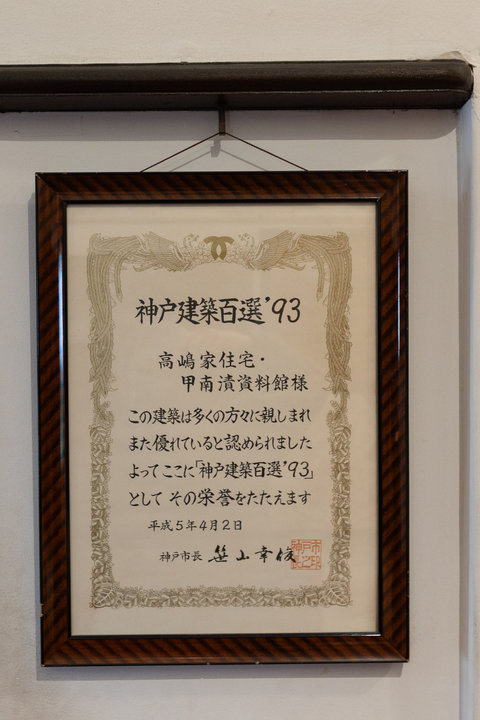 神戸建築百選'93
高嶋家住宅・
甲南漬資料館様
この建築は多くの方々に親しまれ
また優れていると認められました
よって ここに「神戸建築百選'93」
として その栄誉をたたえます
平成5年4月2日
神戸市長 笹山幸俊
神戸市長之印